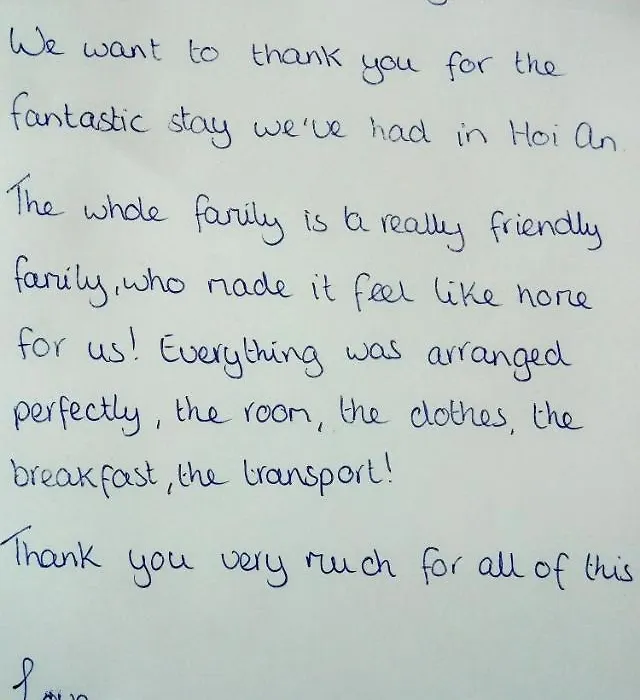 We want to thank you for the
fantastic stay we've had in Hoi An.
The whole family is a really friendly
family, who made it feel like home
for us! Everything was arranged
perfectly, the room, the clothes, the
breakfast, the transport!
Thank you very much for all of this